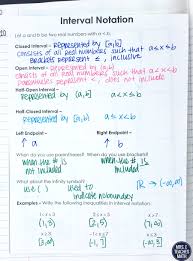 Interval Notation
(Let a and b be two real numbers with a < b.
Closed Interval - Represented by [a,b]
consists of all real numbers such that a≤x≤b
Brackets represent ≤, inclusive
Open Interval - Represented by (a,b)
consists of all real numbers such that a<x<b
Parentheses represent <, does not include
Half-Open Interval -
Represented by (a,b] a<x≤b
Half-Closed Interval -
represented by [a,b) a≤x<b
Left Endpoint - Right Endpoint -
a b
When do you use parentheses? When do you use brackets?
when the # is not included
when the # IS included
What does the infinity symbol?
use ( ) used to indicate no boundary
ℝ → (-∞,∞)
Examples - Write the following inequalities in interval notation: